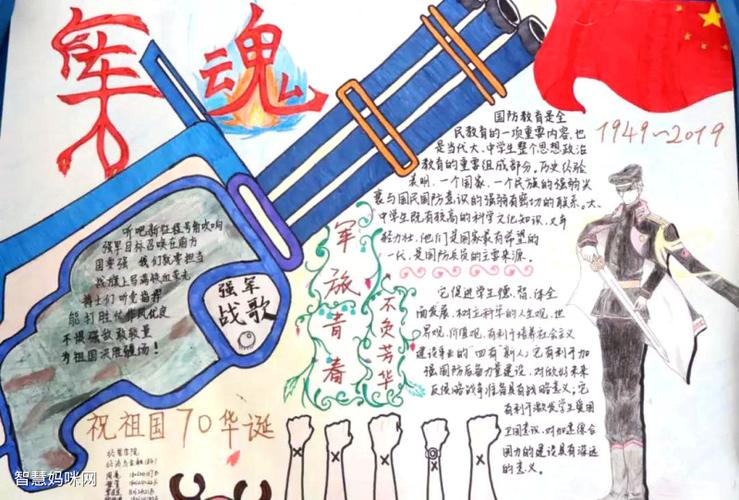 军魂
听吧新征程号角吹响
强军目标召唤在前方
国要强 我们就要担当
战旗上写满铁血荣光
将士们听党指挥
能打胜仗作风优良
不惧强敌敢较量
为祖国决胜疆场！
强军
战歌
祝祖国70华诞
军旅青春
不负芳华
国防教育是全
民教育的一项重要内容，也
是当代大、中学生整个思想政治
教育的重要组成部分。历史经验
表明，一个国家、一个民族的强弱兴
衰与国民国防意识的强弱有密切的联系。大、
中学生既有较高的科学文化知识，又年
轻力壮，他们是国家最有希望的
一代，是国防兵员的主要来源。
它促进学生德、智、体全
面发展，树立科学的人生观、世
界观、价值观，有利于培养社会主义
建设事业的“四有”新人；它有利于加
强国防后备力量建设，对做好未来
反侵略战争准备具有战略意义；它
有利于激发学生爱国
卫国意识，对加速综合
国力的建设具有深远
的意义。
1949~2019
智慧妈咪网